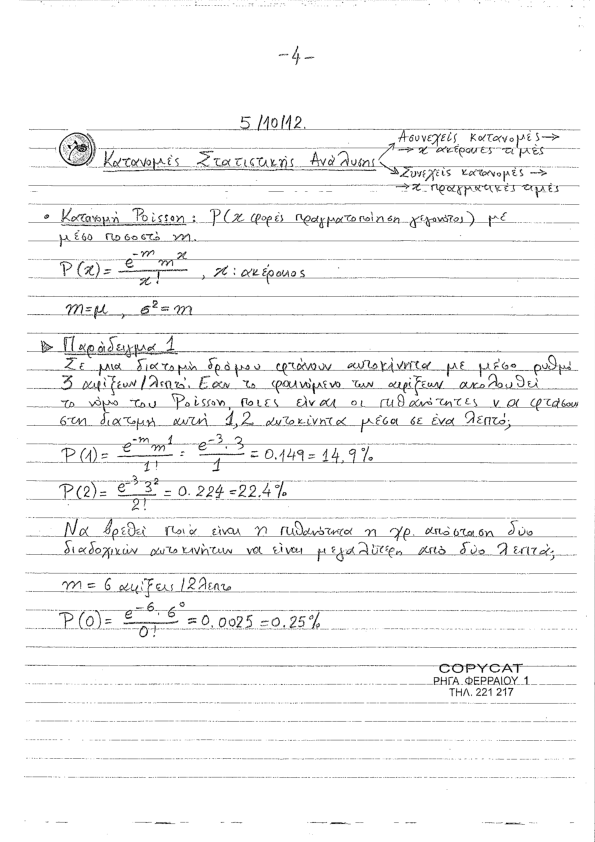 -4-
5/10/12.
Κατανομές Στατιστικής Ανάλυσης
Ασυνεχείς κατανομές →
→ x ακέραιες τιμές
Συνεχείς κατανομές →
→ x πραγματικές τιμές
• Κατανομή Poisson: P(x φορές πραγματοποίηση γεγονότος) με
μέσο ποσοστό m.
P(x) = e^{-m} m^x / x! , x: ακέραιος
m=μ , σ²=m
Παράδειγμα 1
Σε μια διατομή δρόμου φτάνουν αυτοκίνητα με μέσο ρυθμό
3 αφίξεων/λεπτό. Εάν το φαινόμενο των αφίξεων ακολουθεί
το νόμο του Poisson, ποιες είναι οι πιθανότητες να φτάσουν
στη διατομή αυτή 1,2 αυτοκίνητα μέσα σε ένα λεπτό;
P(1) = e^{-m} m^1 / 1! = e^{-3} · 3 / 1 = 0.149 = 14,9%
P(2) = e^{-3} 3^2 / 2! = 0.224 = 22.4%
Να βρεθεί ποιά είναι η πιθανότητα η χρ. απόσταση δύο
διαδοχικών αυτοκινήτων να είναι μεγαλύτερη από δύο λεπτά;
m = 6 αφίξεις/2λεπτο
P(0) = e^{-6} · 6^0 / 0! = 0.0025 = 0.25%
COPYCAT
ΡΗΓΑ ΦΕΡΡΑΙΟΥ 1
ΤΗΛ. 221 217